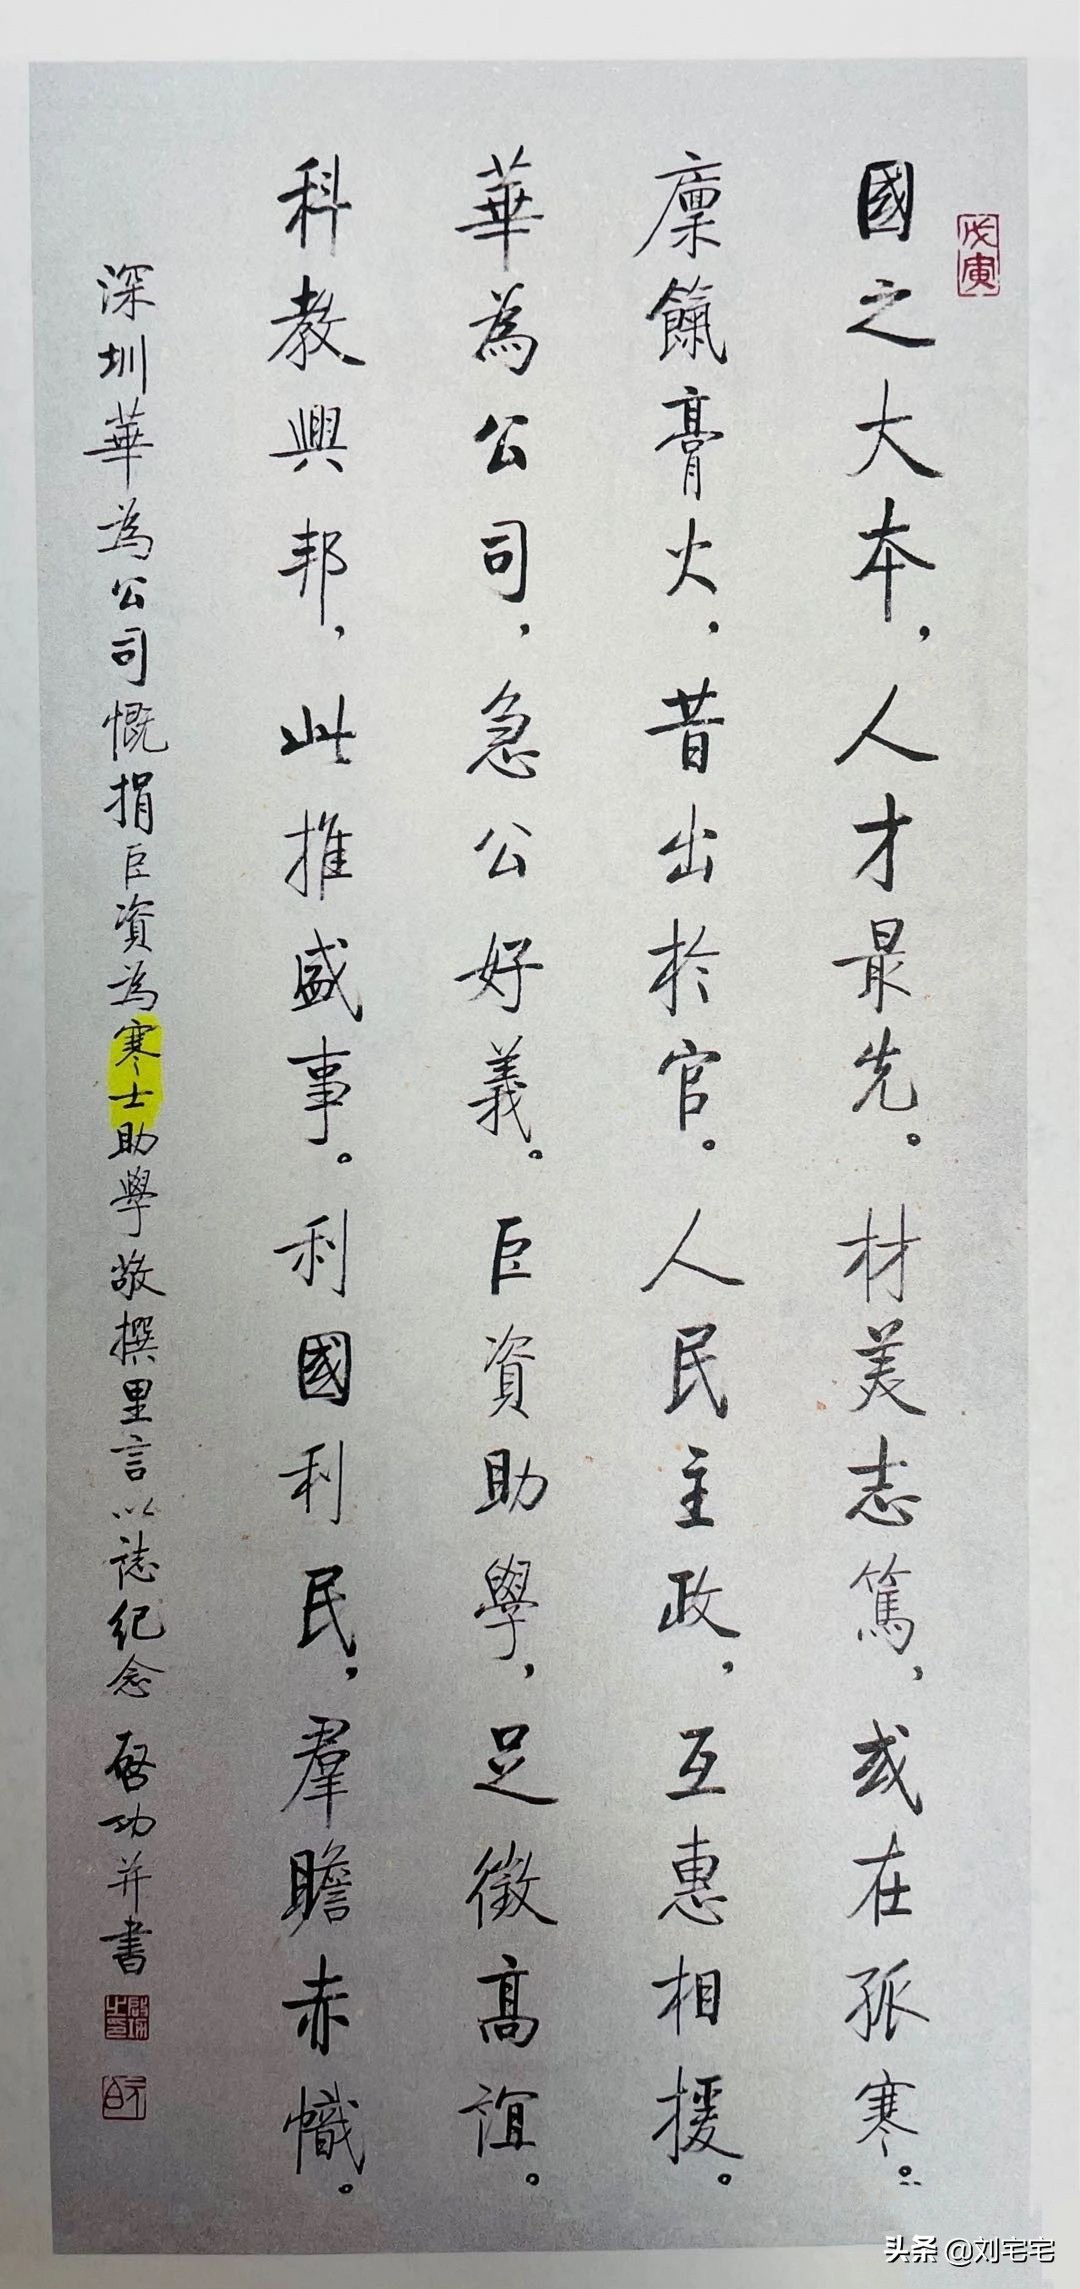 戊寅
國之大本，人才最先。材美志篤，或在孤寒。
廩餼膏火，昔出於官。人民主政，互惠相援。
華為公司，急公好義。巨資助學，足徵高誼。
科教興邦，此推盛事。利國利民，羣瞻赤幟。
深圳華為公司慨捐巨資為寒士助學敬撰里言以誌紀念 啓功并書
頭条 @刘宅宅